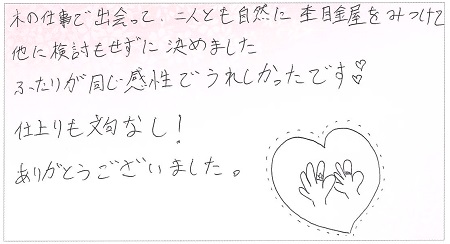 木の仕事で出会って、二人とも自然に杢目金屋をみつけて
他に検討もせずに決めました
ふたりが同じ感性でうれしかったです♡
仕上りも文句なし!
ありがとうございました。